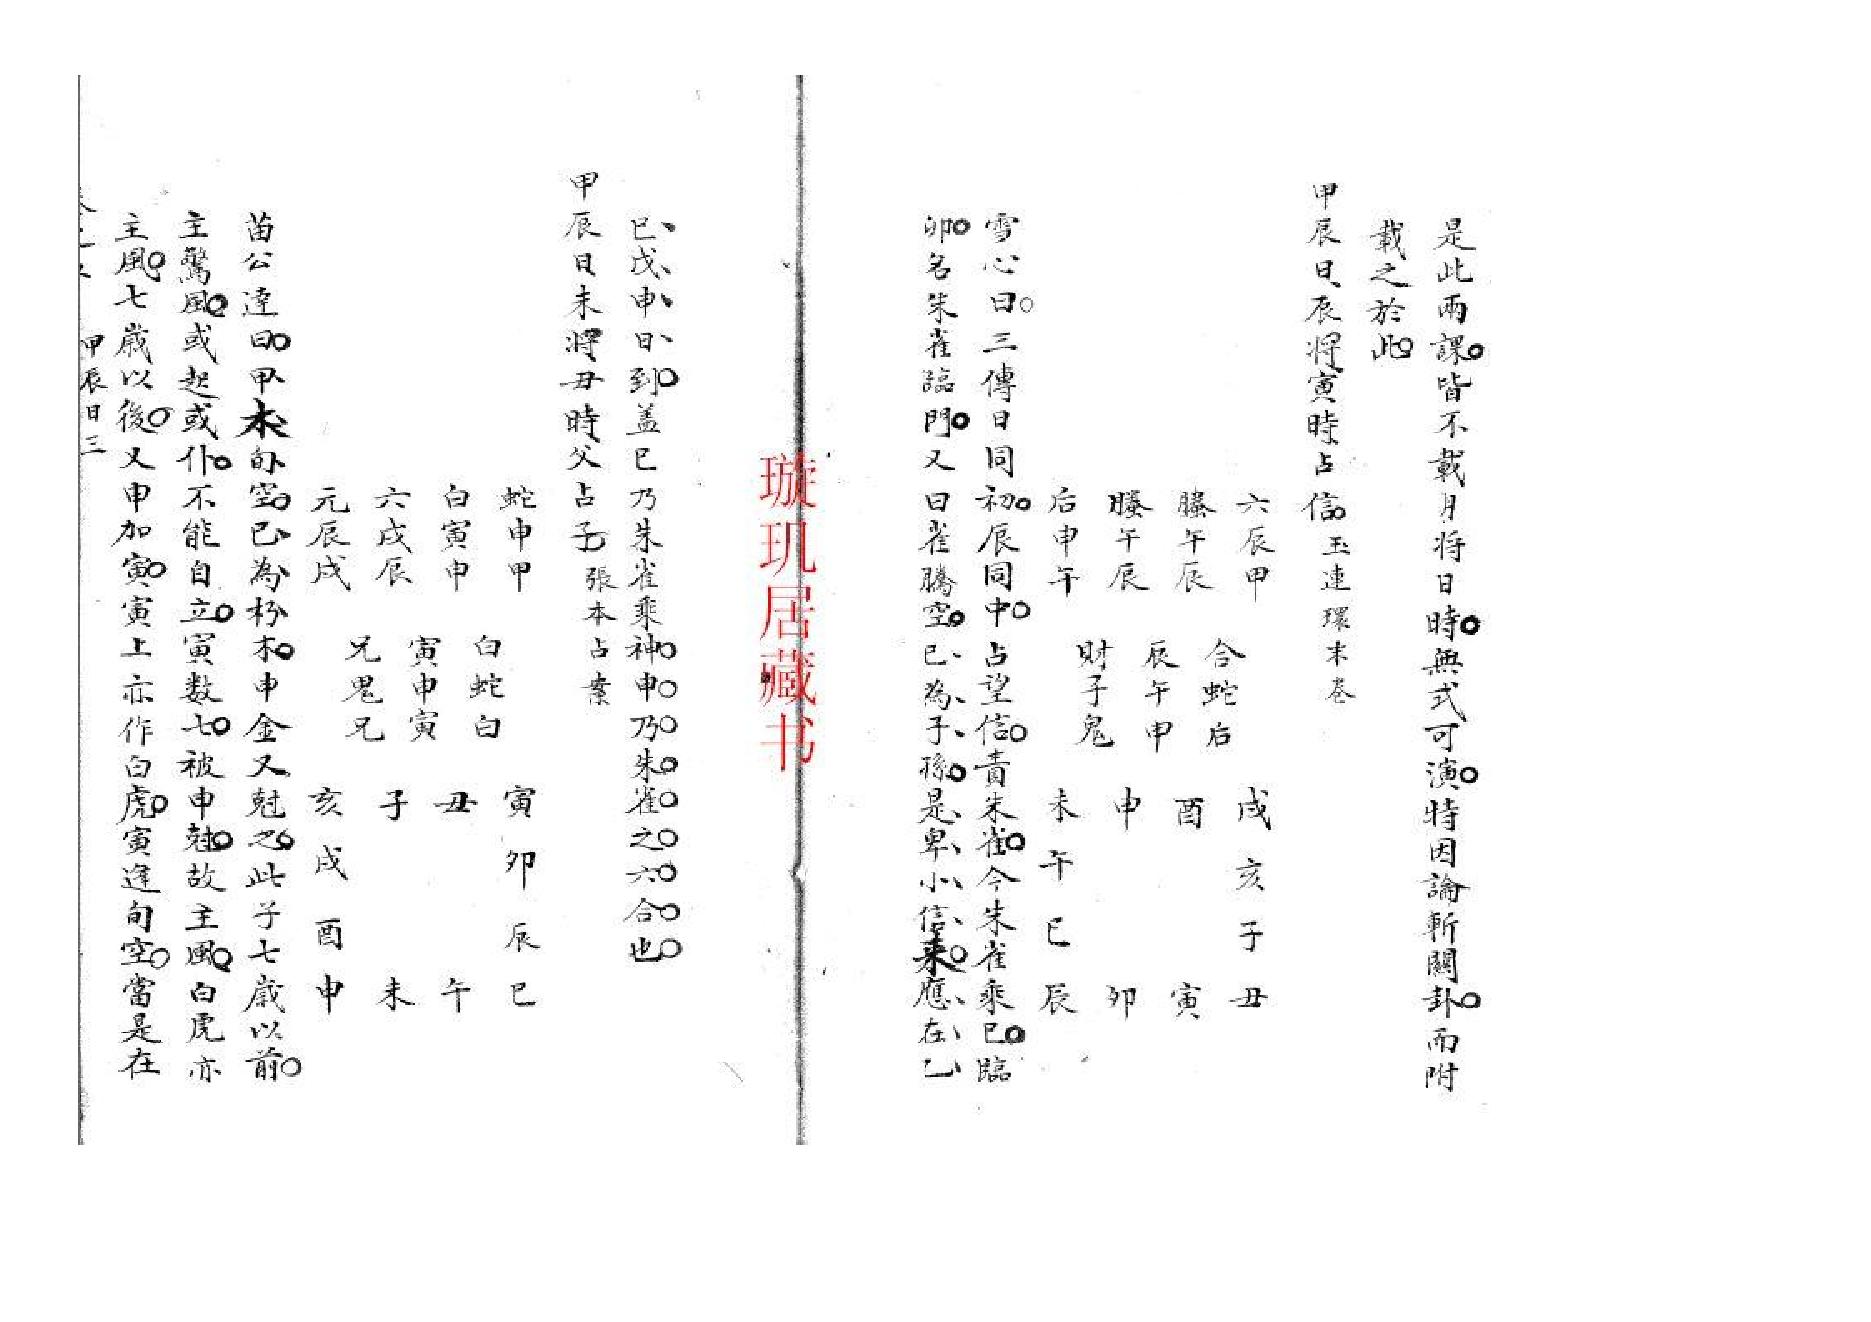 是此兩課皆不載月将日時無式可演特因論斬關卦而附
載之於此
甲辰日辰将寅時占信玉連環末卷
六辰甲 合蛇后 戌亥子丑
螣午辰 辰午申 酉 寅
螣午辰 財子鬼 申 卯
后申午 未午巳辰
雪心曰三傳日同初辰同中占望信責朱雀今朱雀乘巳臨
卯名朱雀臨門又曰雀騰空巳為子孫是卑小信来應在乙
巳戊申日到盖巳乃朱雀乘神申乃朱雀之六合也
甲辰日未将丑時父占子張本占案
蛇申甲 白蛇白 寅卯辰巳
白寅申 寅申寅 丑 午
六戌辰 兄鬼兄 子 未
元辰戌 亥戌酉申
苗公達曰甲木旬空巳為朽木申金又尅之此子七歲以前
主驚風或起或仆不能自立寅数七被申尅故主風白虎亦
主風七歲以後又申加寅寅上亦作白虎寅逢旬空當是在
甲辰日三
璇玑居藏书